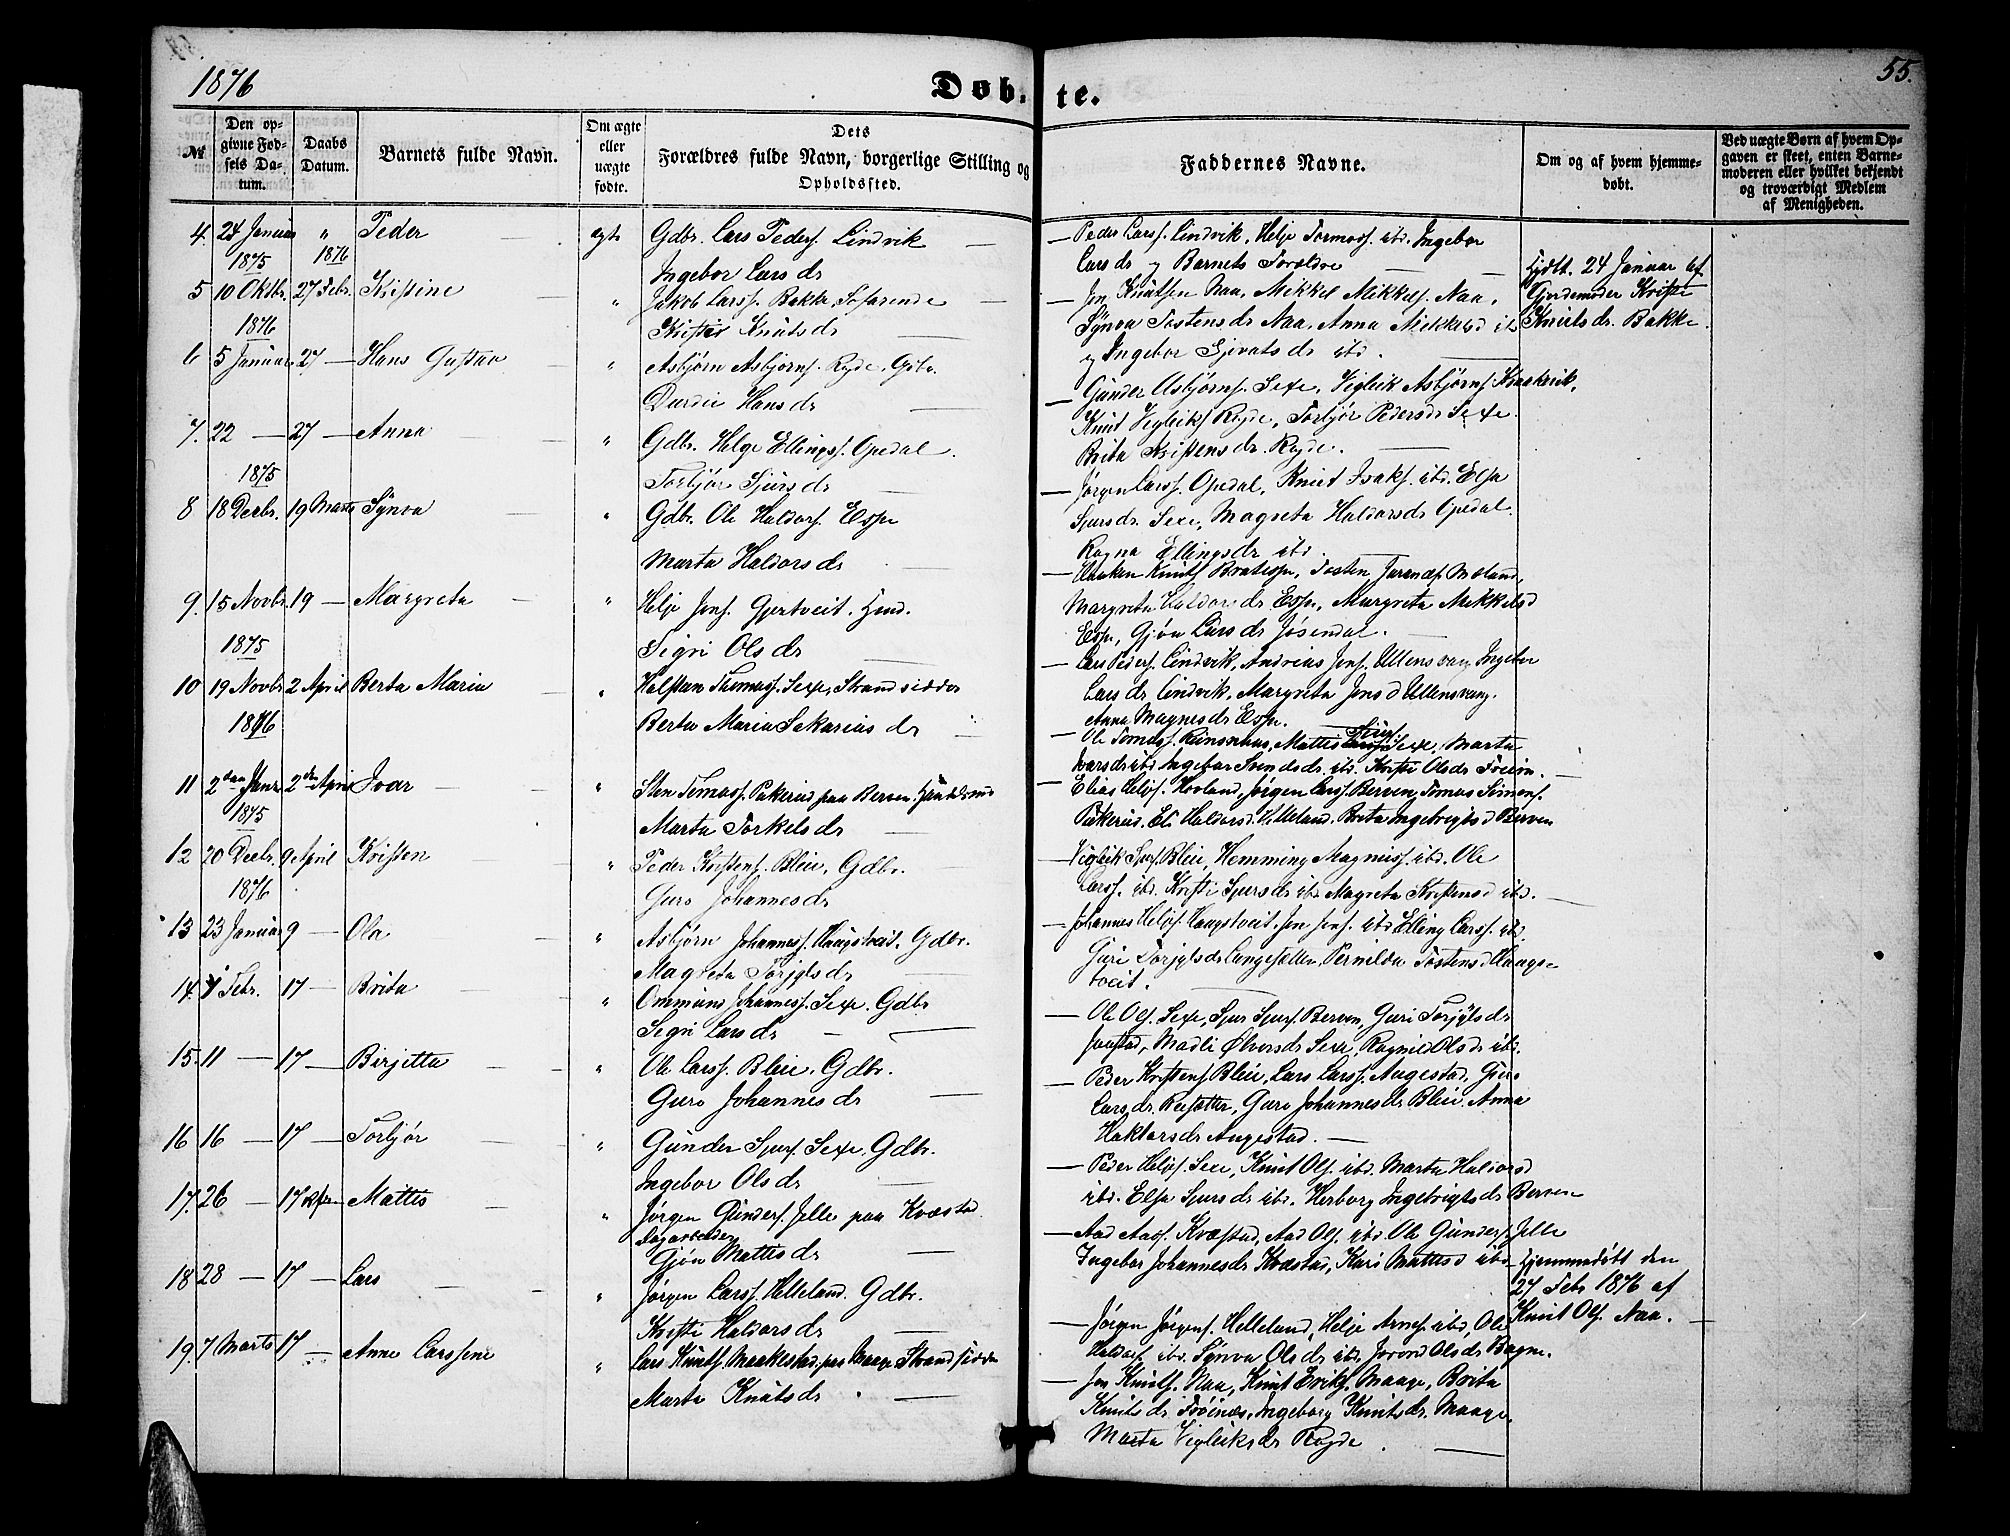 1876
Døb-te.
55.
№
Den opgivne Fødsels Datum.
Daabs Datum.
Barnets fulde Navn.
Om ægte eller uægte fødte.
Dets Forældres fulde Navn, borgerlige Stilling og Opholdssted.
Faddernes Navne.
Om og af hvem hjemmedøbt.
Ved uægte Børn af hvem Opgaven er skeet, enten Barnemoderen eller hvilket bekjendt og troværdigt Medlem af Menigheden.
4. 24 Januar " Peder ægte Gdbr. Lars Peders. Lindvik
Ingebor Larsdr
— Peder Larss. Lindvik, Helje Tormoss. ibd. Ingebor
Larsdr og Barnets Forældre
Hjdbt. 24 Januar af
Gjordemoder Kristi
Knutsdr. Bakke.
1875 1876
5 10 Oktbr. 27 Febr. Kristine " Jakob Larss. Bakke, Søfarende
Kristie Knutsdr
— Jon Knutsen Naa, Mikkel Mikkels. Naa,
Synva Tostensdr Naa, Anna Mikkelsd ib
og Ingebor Sjovatsdr ibd.
1876
6 5 Januar 27 — Hans Gustav " Asbjørn Asbjørns. Ryde, Gdbr.
Durdei Hansdr
— Gunder Asbjørns. Sexe, Vigleik Asbjørns. Kinserik,
Knut Vigleiks Ryde, Torbjør Pedersdr Sexe
Brita Kristensdr. Ryde.
7. 22 — 27 — Anna " Gdbr. Helge Ellings. Opedal.
Torbjør Sjursdr
— Jørgen Larss. Opedal, Knut Isaks. ibd. Elsa
Sjursdr. Sexe, Magreta Haldorsdr Opedal.
Ragna Ellingsdr ibd.
1875
8 18 Decbr. 19 Marts Synva " Gdbr. Ole Haldors. Espe
Marta Haldorsdr
— Haaken Knuts Bratespe, Tosten
Margreta Haldorsdr Espe, Margreta Mikkelsd
Espe, Gjøa Larsdr Jøsendal.
9. 15 Novbr. 19 — Margreta " Helje Jons. Gjertveit. Hmd.
Sigri Olsdr
— Lars Peders. Lindvik, Andreas Jons. Ullensvang Ingebor
Larsdr Lindvik, Margreta Jonsd Ullensvang.
Anna Magnesdr Espe.
1875
10 19 Novbr 2 April Berta Maria " Halstan Thomass. Sexe, Strandsidder
Berta Maria Sakariasdr
— Ole Tomass. Reinsnaas, Mattis Sjurs. Sexe, Marta
Larsdr ibd Ingebor Svendsdr. ibd. Kristi Olsdr
1876
11 2den Janr 2den April Ivar " Sten Tomass. Pukerud paa Berven
Marta Torkelsdr
— Elias Heljes. Hovland, Jørgen Larss. Berven, Tomas Simons.
Pukerud. Eli Haldorsd. Helleland. Brita Ingebrigtsd Berven
1875
12 20 Decbr. 9 April Kristen " Peder Kristens. Bleie, Gdbr.
Guro Johannesdr
— Vigleik Sjurs. Bleie, Hemming Magniss. ibd. Ole
Larss. ibd. Kristi Sjursdr ibd Magreta Kristensd ibd.
1876
13 23 Januar 9 — Ola " Asbjørn Johanness. Haugstveit, Gdbr.
Magreta Torjylsdr
— Johannes Heljes. Haugstveit, Jon Jons. ibd Elling Larss. ibd.
Guri Torjylsdr Langesæter, Pernilda Tostensd Haugs-
tveit.
14. 1 Febr. 17 — Brita " Ommund Johanness. Sexe, Gdbr
Sigri Larsdr
— Ole Ols. Sexe, Sjur Sjurs. Berven, Guri Torjylsdr
Jaastad, Madli Ølversdr Sexe, Ragnild Olsdr ibd.
15. 11 — 17 — Birjetta " Ole Larss. Bleie, Gdbr.
Guro Johannesdr
— Peder Kristens. Bleie, Lars Larss. Augestad, Guro
Larsdr. Reisæter, Guro Johannesdr Bleie Anna
Haktorsdr Augestad.
16 16 — 17 — Torbjør " Gunder Sjurs. Sexe, Gdbr.
Ingebor Olsdr
— Peder Heljes. Sexe, Knut Ols. ibd. Marta Haldorsd
ibd. Elsa Sjursdr ibd. Herborg Ingebrigtsdr Berven
17. 26 — 17 Mattis " Jørgen Gunders. Jelle paa Kvæstad
Dagarbeider
Gjøa Mattisdr
— Aad Aads. Kvæstad, Aad Ols. ibd Ole Gunders. Jelle
Ingebor Johannesdr Kvæstad, Kari Mattisd ibd
18 28 — 17 — Lars " Jørgen Larss. Helleland. Gdbr.
Kristi Haldorsdr
— Jørgen Jørgens. Helleland, Helje Arnes. ibd, Ole
Haldors. ibd. Synva Olsdr ibd Jorond Olsdr Bagne.
Hjemmedøbt den
27 Febr 1876 af
Knut Ols. Naa.
19. 7 Marts 17 — Anne Larssine " Lars Knuts. Maakestad paa Maage Strandsidder
Marta Knutsdr
— Jon Knuts. Naa, Knut Eriks. Maage, Brita
Knutsdr Frøines, Ingeborg Knutsdr. Maage.
Marta Vigleiksdr Ryde